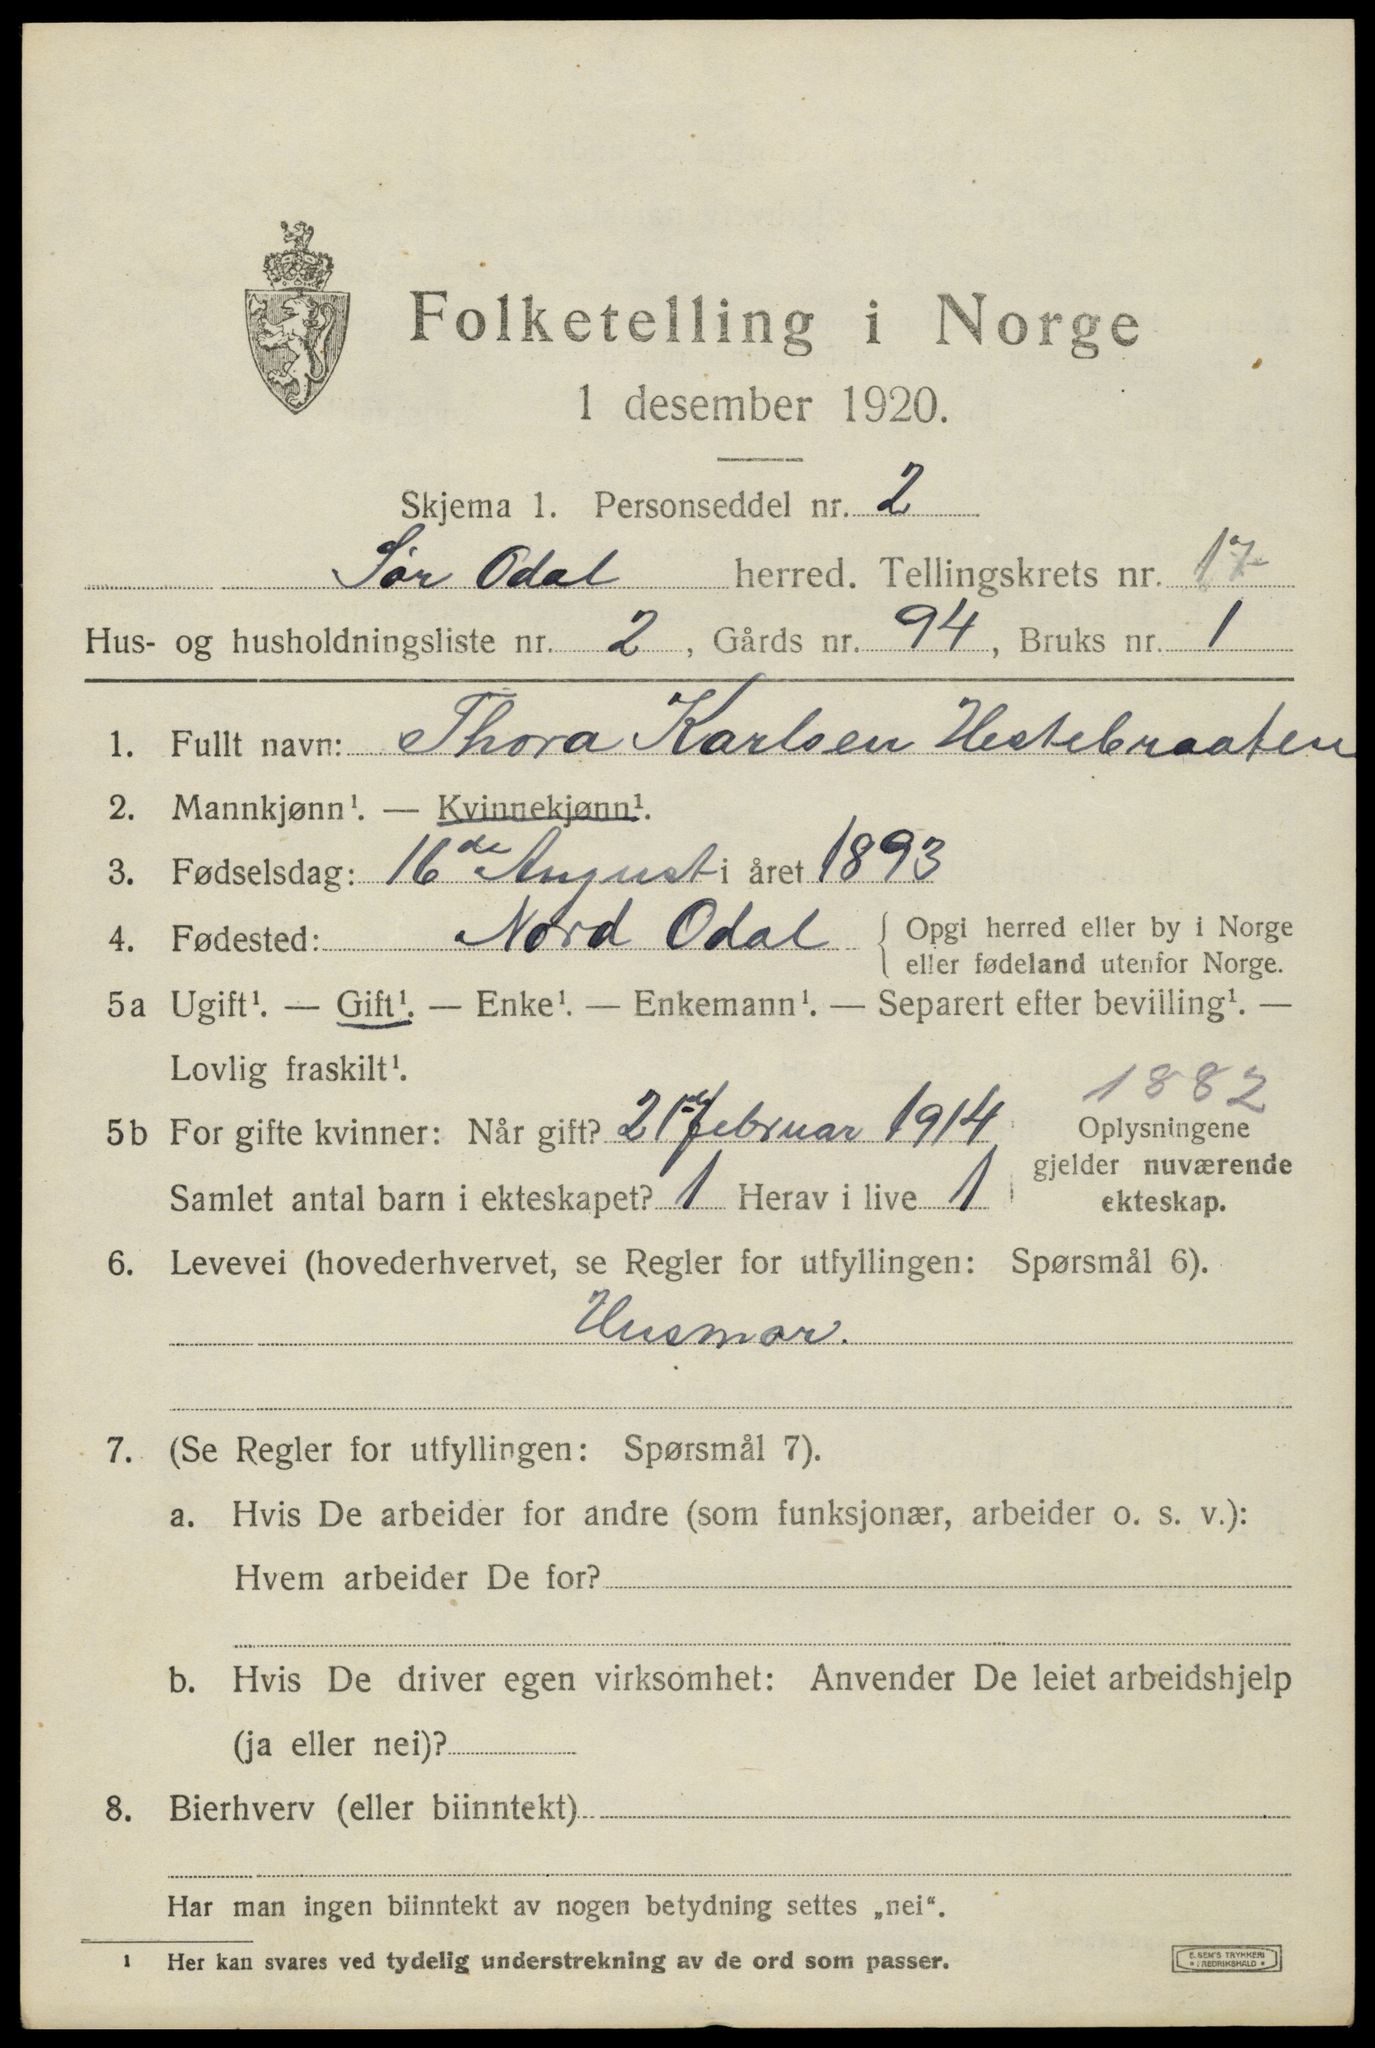 Folketelling i Norge
1 desember 1920.
Skjema 1. Personseddel nr. 2
Sør Odal herred. Tellingskrets nr. 17
Hus- og husholdningsliste nr. 2, Gårds nr. 94, Bruks nr. 1
1. Fullt navn: Thora Karlsen Hestebraaten
2. Mannkjønn¹. — Kvinnekjønn¹.
3. Fødselsdag: 16de August i året 1893
4. Fødested: Nord Odal { Opgi herred eller by i Norge
eller fødeland utenfor Norge.
5a Ugift¹. — Gift¹. — Enke¹. — Enkemann¹. — Separert efter bevilling¹. —
Lovlig fraskilt¹.
1882
5b For gifte kvinner: Når gift? 21 Februar 1914 Oplysningene
gjelder nuværende
Samlet antal barn i ekteskapet? 1 Herav i live 1 ekteskap.
6. Levevei (hovederhvervet, se Regler for utfyllingen: Spørsmål 6).
Husmor.
7. (Se Regler for utfyllingen: Spørsmål 7).
a. Hvis De arbeider for andre (som funksjonær, arbeider o. s. v.):
Hvem arbeider De for?
b. Hvis De driver egen virksomhet: Anvender De leiet arbeidshjelp
(ja eller nei)?
8. Bierhverv (eller biinntekt)
Har man ingen biinntekt av nogen betydning settes „nei“.
¹ Her kan svares ved tydelig understrekning av de ord som passer.
E. SEM'S TRYKKERI
• FREDRIKSHALD •